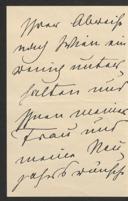 Ihrer Abreise
nach Wien ein
wenig unter
halten und
Ihnen meiner
Frau und
meine Neu
jahrswünsche